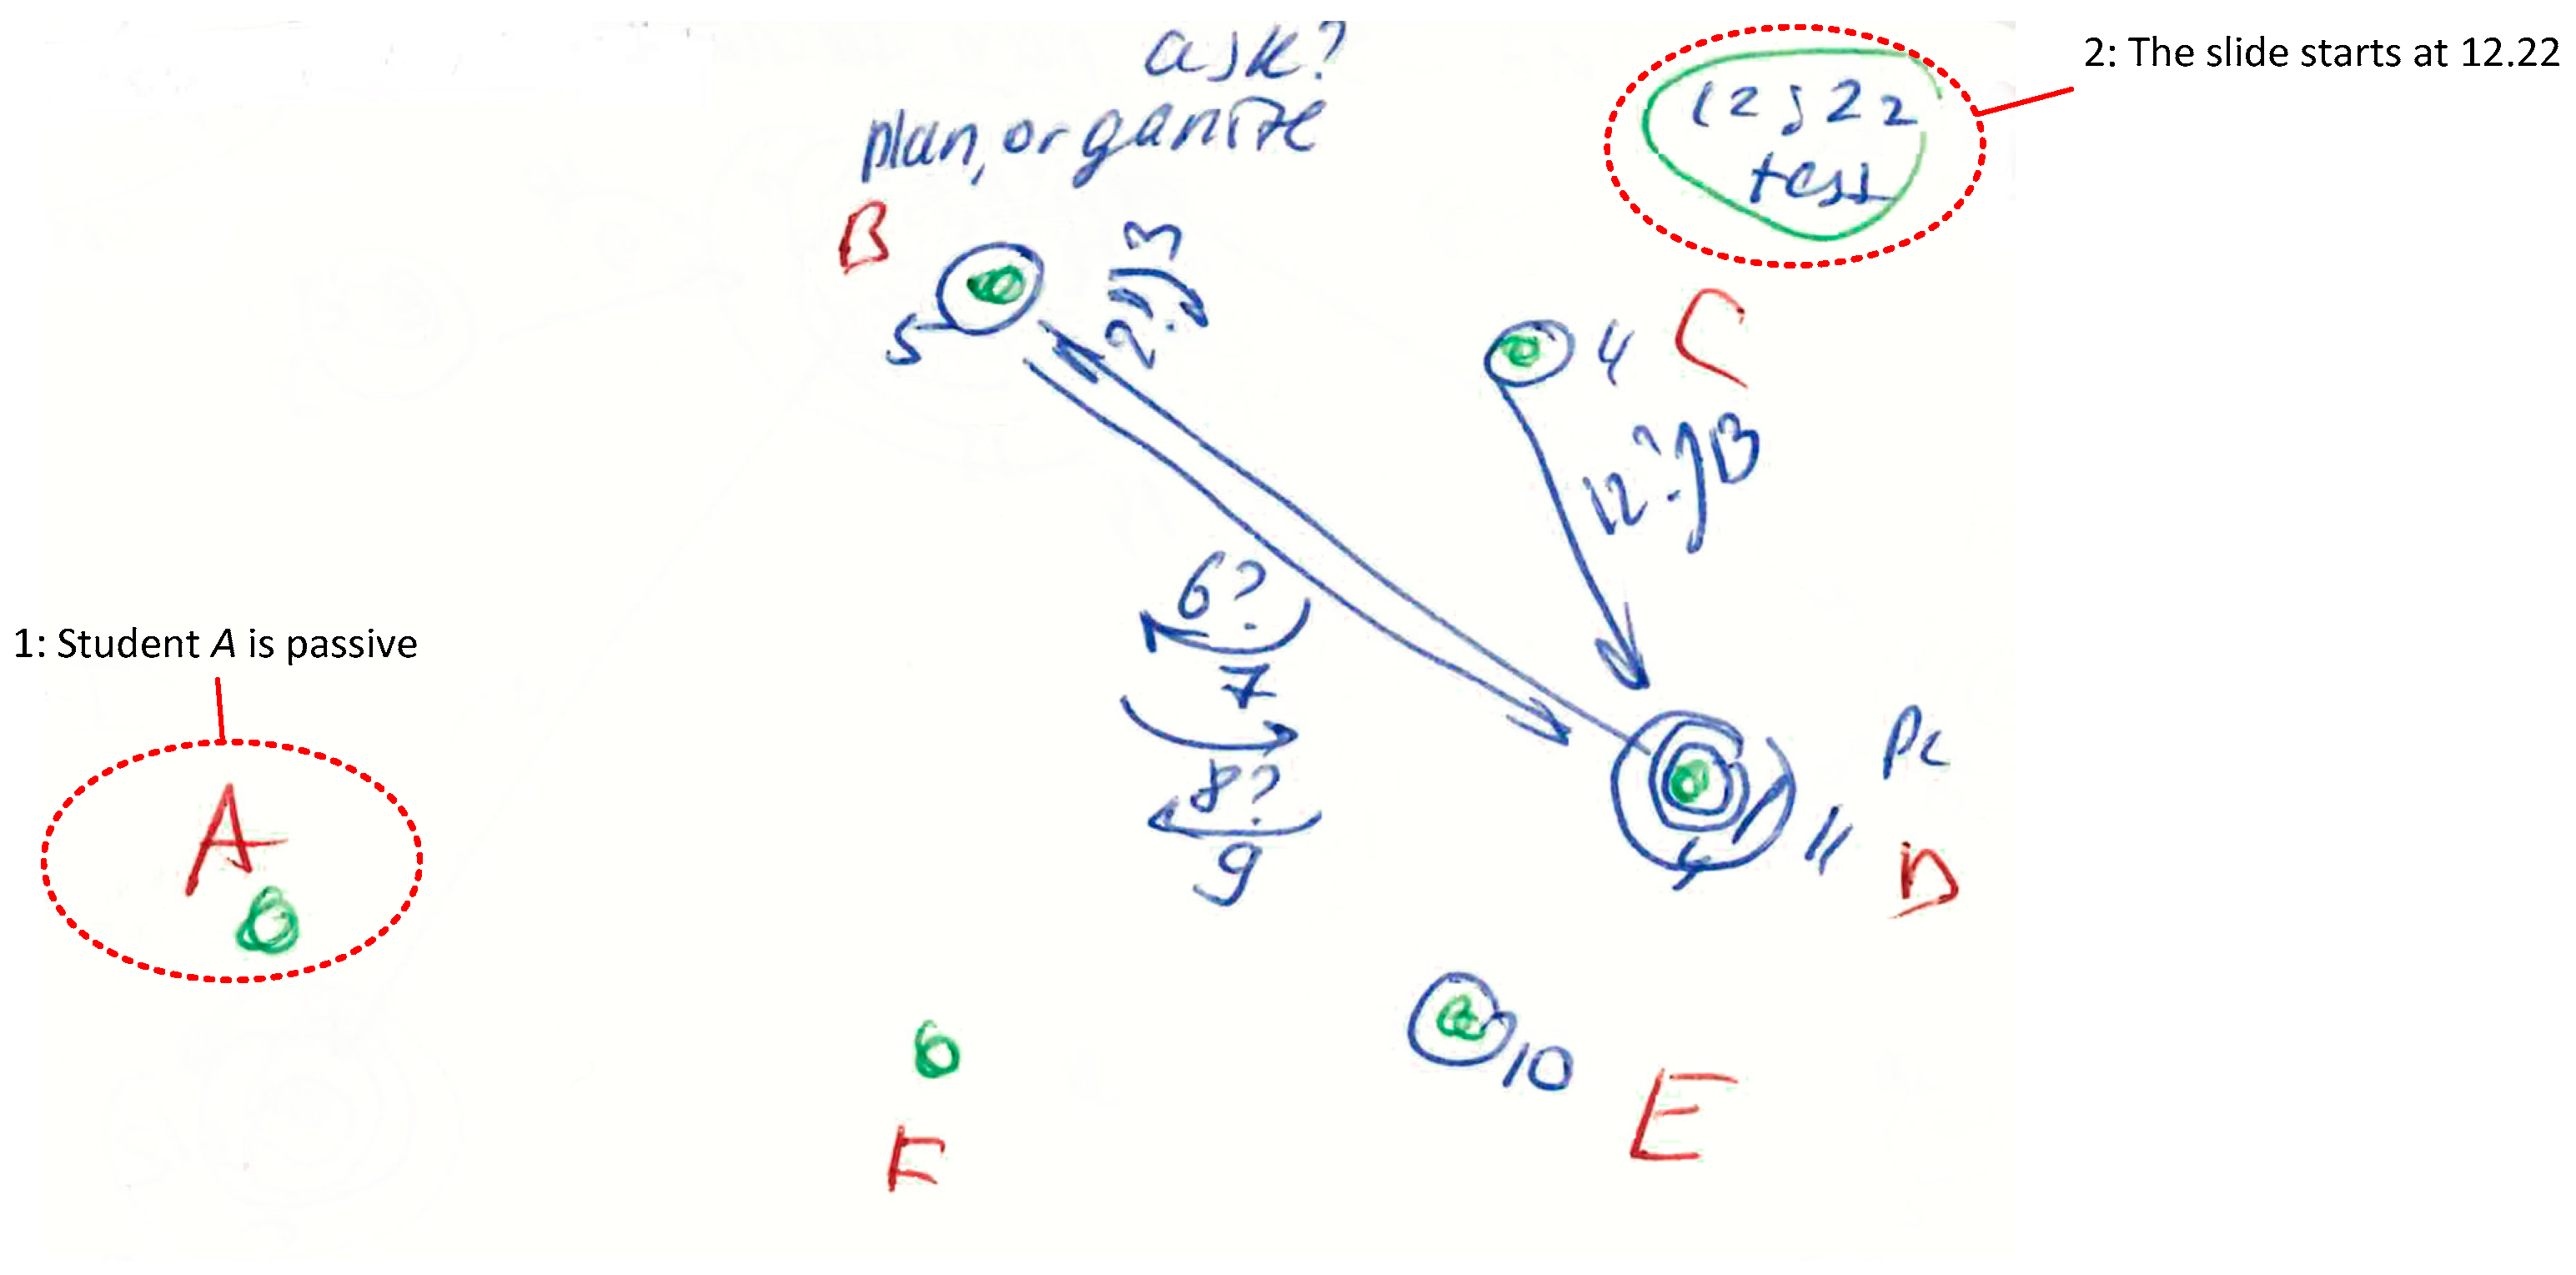 ask?
plan, organize
12;22
tess
2: The slide starts at 12.22
B
3
2?
5
4
C
12?
13
6?
7
1: Student A is passive
8?
9
PC
11
D
A
10
E
F